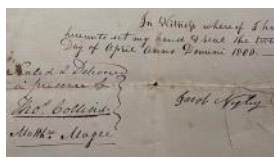 In Witness where of I have
presents set my hand & seal the
Day of April Anno Domini 1800.
Sealed & Delivered
in presence of
Thos. Collins
Matthw. Magee
Jacob